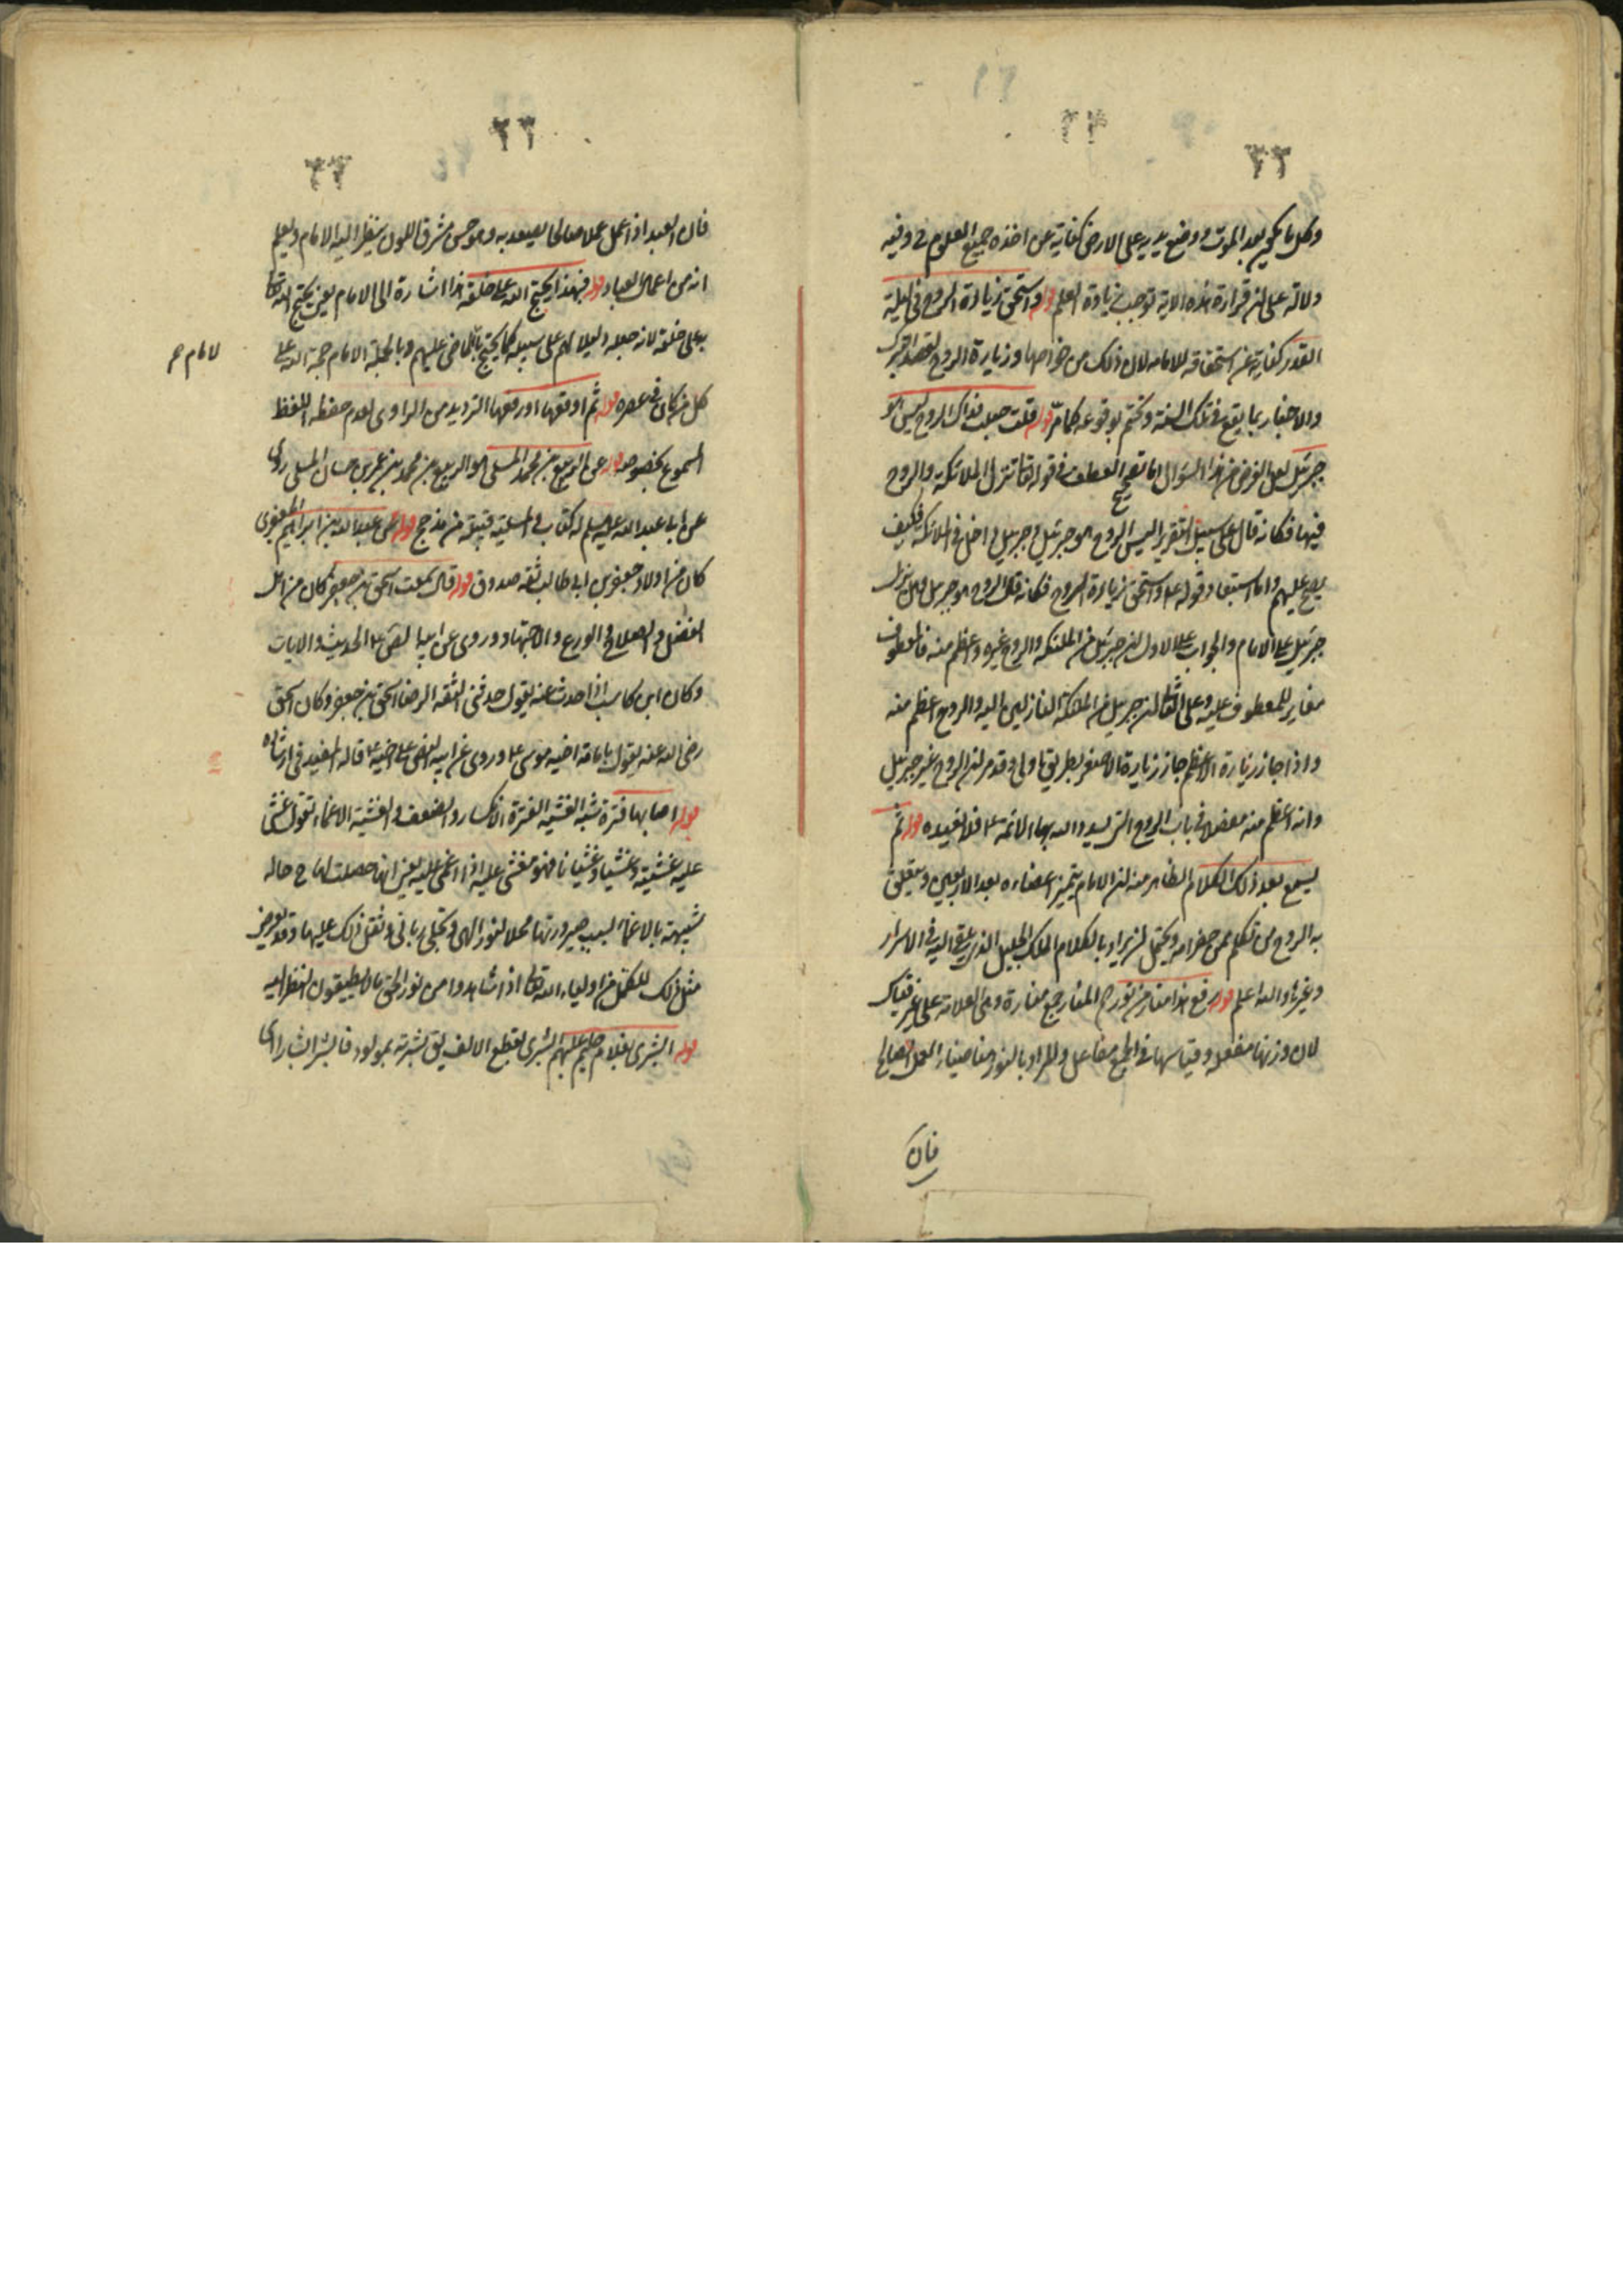 ٢٣
وكل ما يحيى بعد الموت ووضع يديه على الارض كناية عن اخذه جميع العلوم في وفيه
دلالة على ان قراءة هذه الاية توجب زيادة العلم قوله واستحق زيارة الروح في ليلة
القدر كناية عن استحقاقه للامامه لان ذلك من خواصها وزيارة الروح لقصد التبرك
والاخبار بما يقع في تلك السنة وتحتم بوقوعه كما مر قوله قلت جعلت فداك الروح ليس هو
جبرئيل لعل الغرض من هذا السؤال اما تصحيح العطف في قوله تعالى تنزل الملائكة والروح
فيها فكانه قال على سبيل التقرير اليس الروح هو جبرئيل وجبرئيل داخل في الملائكة فكيف
يصح عليهم واما استبعاد قوله ع واستحق زيارة الروح فكانه قال الروح هو جبرئيل وهل ينزل
جبرئيل على الامام والجواب على الاول ان جبرئيل من الملئكة والروح غيره واعظم منه فالمعطوف
مغاير للمعطوف عليه وعلى الثاني ان جبرئيل من الملئكة النازلين اليه والروح اعظم منه
واذا جاز زيارة الاعظم جاز زيارة الاصغر بطريق اولى وقد مر ان الروح غير جبرئيل
وانه اعظم منه مفصلا في باب الروح التي يسدد الله بها الائمة ع فلا نعيده قوله ثم
يسمع بعد ذلك الكلام الظاهر منه ان الامام يتميز اعضاءه بعد الاربعين ويتعلق
به الروح من تكلم من حضر امه ويحتمل ان يراد بالكلام الملك الجليل الذي يلقى اليه في الاسرار
وغيرها والله اعلم قوله رفع له منار من نور المناير جمع منارة وهي العلامة على غير قياس
لان وزنها مفعلة وقياسها في الجمع مفاعل والمراد بالنور هنا ضياء العمل الصالح
فان
٣٣
فان العبد اذا عمل عملا صالحا يصعد به وهو حسن مشرق اللون ينظر اليه الامام ويعلم
انه من اعمال العباد قوله فبهذا يحتج الله على خلقه هذا اشارة الى الامام يعني يحتج الله تعالى
به على خلقه لانه جعله دليلا لهم على سبيله كما يحتج بالماضي عليهم وبالجملة الامام حجة الله على
كل من كان في عصره قوله ثم اوقفها اورفعها الترديد من الراوي لعدم حفظه اللفظ
المسموع بخصوصه قوله عن الربيع بن محمد المسلي هو الربيع بن محمد بن عمر بن حسان المسلي روى
عن ابي عبد الله عليه السلم له كتاب والمسلية قبيلة من مذحج قوله عن عبد الله بن ابراهيم الجعفري
كان من اولاد جعفر بن ابي طالب ثقه صدوق قوله قال سمعت اسحق بن جعفر كان من اهل
الفضل والصلاح والورع والاجتهاد وروى عن ابيه لقى ع الحديث والايات
وكان ابن كاسب اذا حدث عنه يقول حدثني الثقة الرضا اسحق بن جعفر وكان اسحق
رضى الله عنه يقول بامامة اخيه موسى ع وروى عن ابيه النص على اخيه ع قاله المفيد في ارشاده
قوله اصابها فترة شبه الغشية الفترة الانكسار والضعف والغشية الاغماء تقول غشى
عليه غشية وغشيا وغشيانا فهو مغشى عليه اذا اغمى عليه يعني انها حصلت لها ح حالة
شبيهة بالاغماء بسبب صيرورتها محلا لنور الهي وتجلى رباني وثقل ذلك عليها وقد يعرض
مثل ذلك للكمل من اولياء الله تعالى اذا شاهدوا من نور الحق ما لا يطيقون النظر اليه
قوله البشرى بغلام حليم عليهم البشرى بقطع الالف يق بشرته بمولود فابشر ابشارا اى
للامام صح